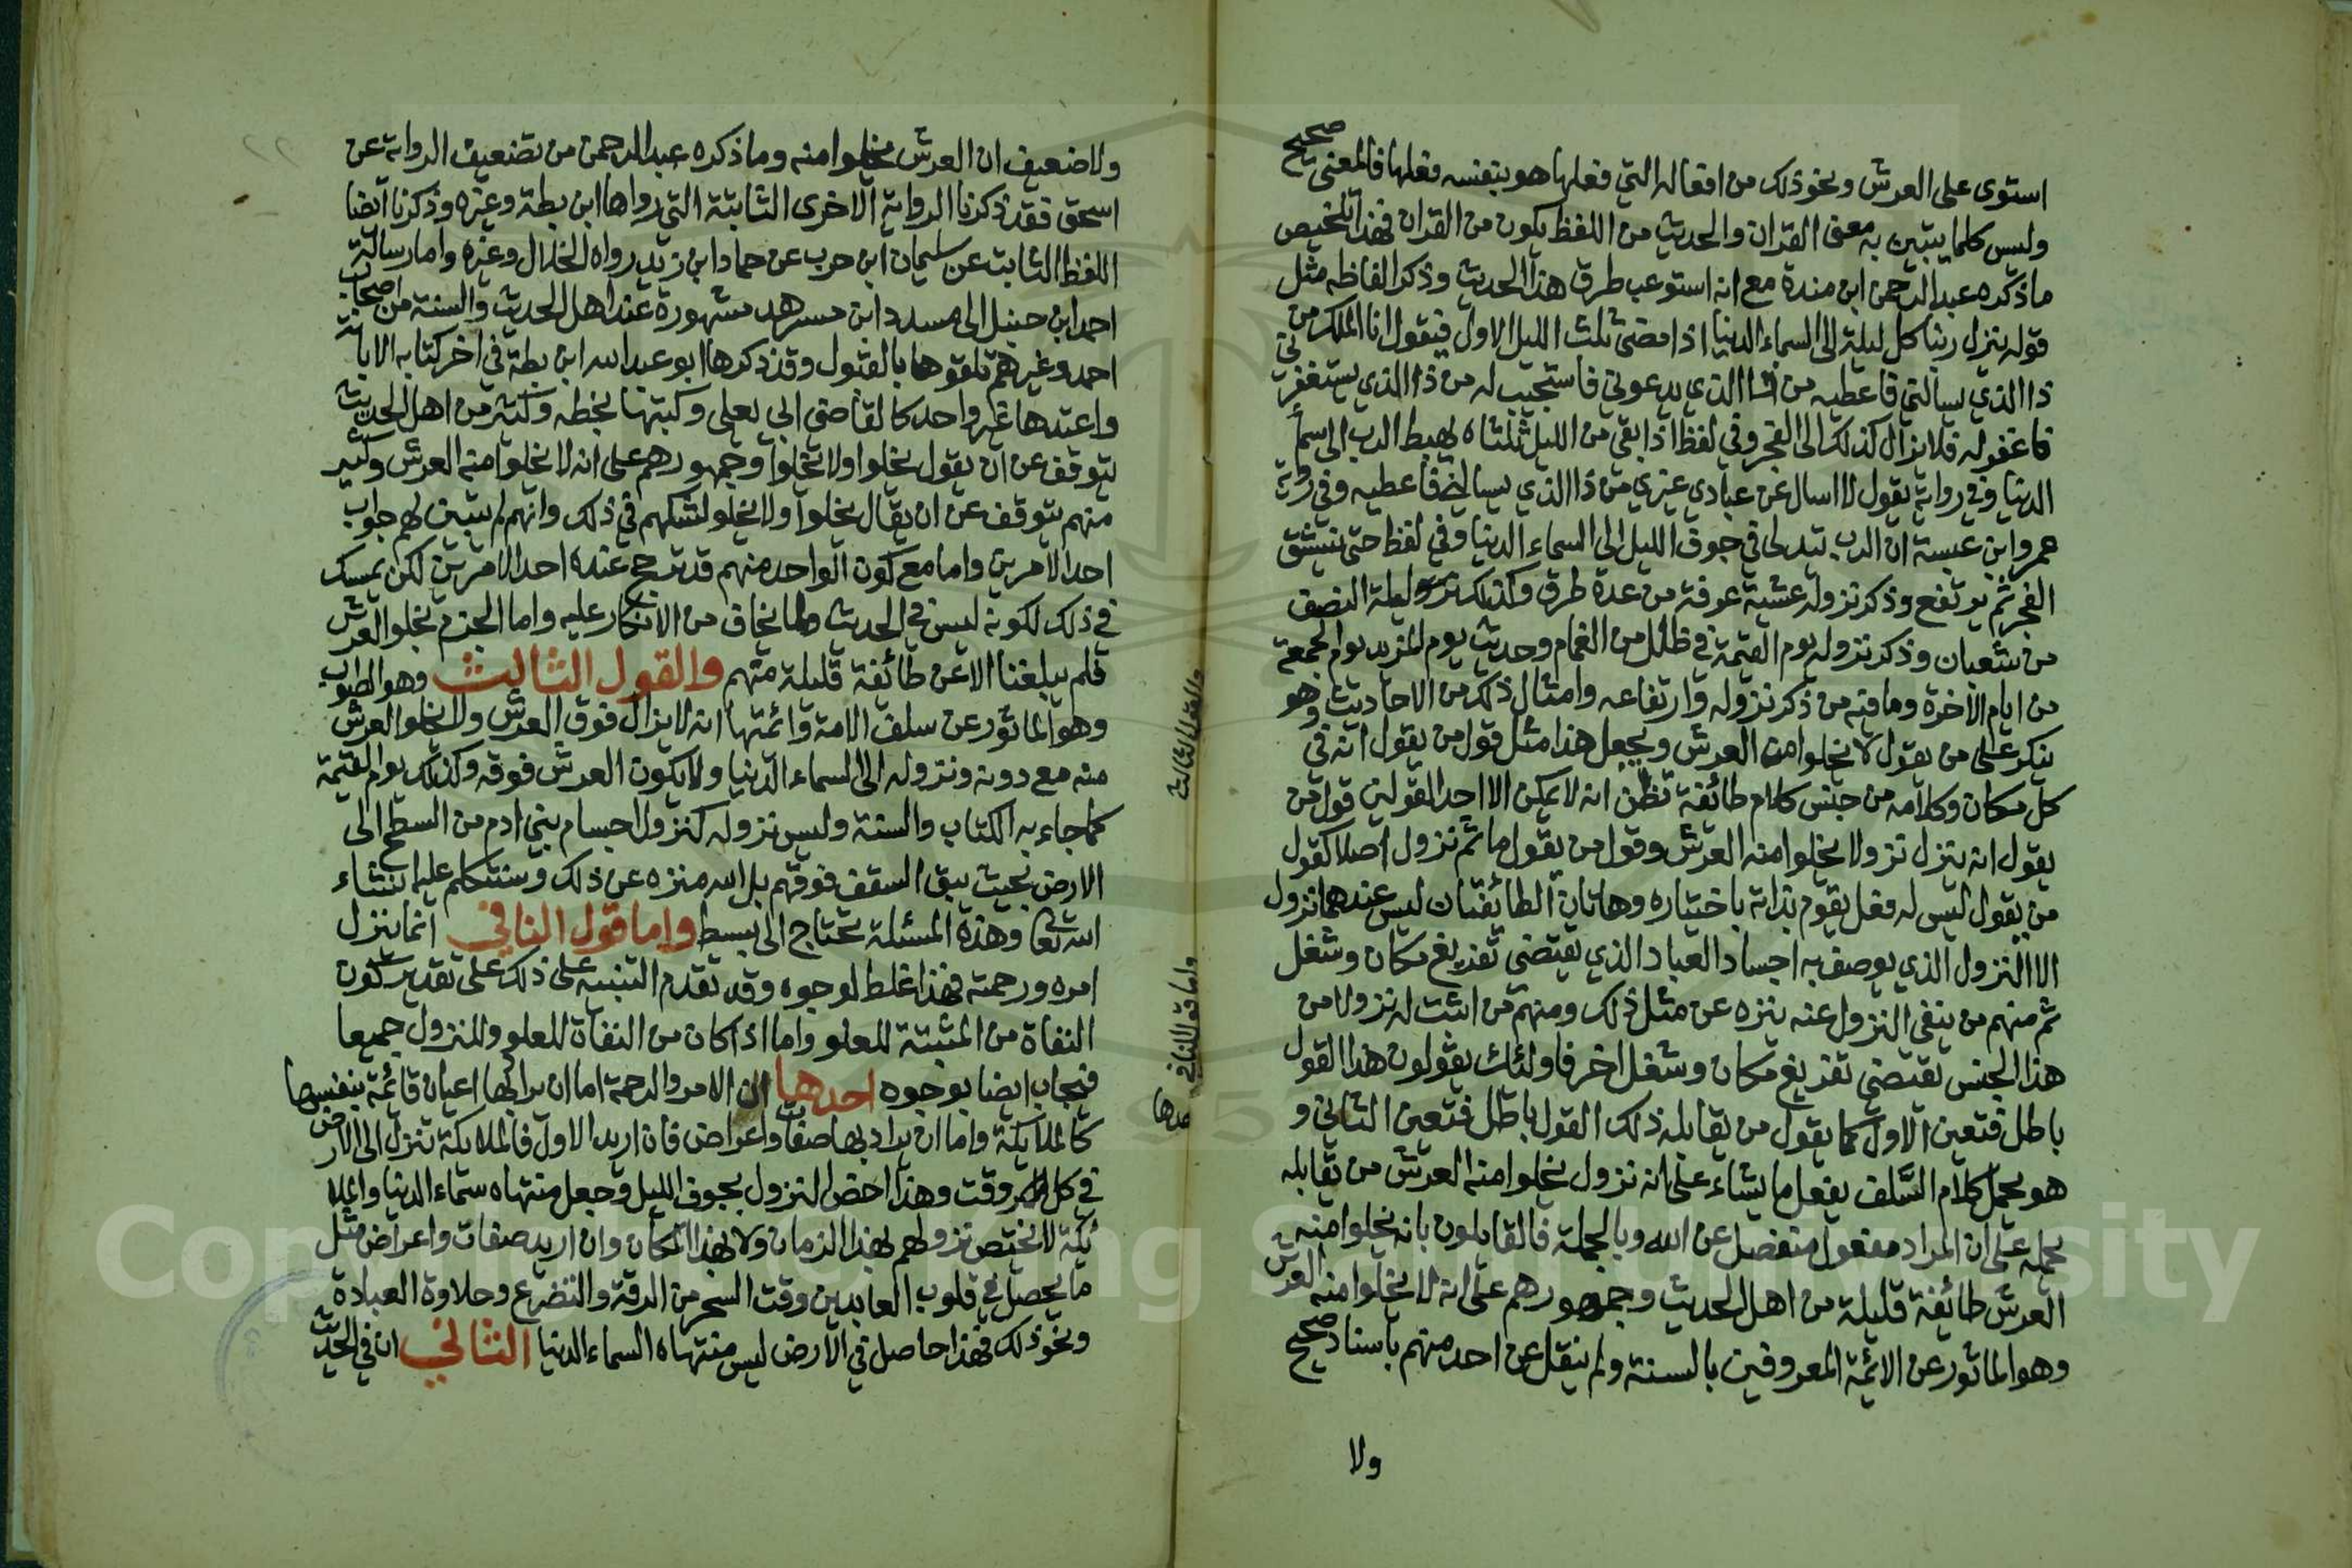 استوى على العرش ونحو ذلك من افعاله التي فعلها هو بنفسه فعلها فالمعنى صحيح
وليس كلما يتبين به معنى القران والحديث من اللفظ يكون من القران فهذا تلخيص
ماذكره عبد الرحمن ابن مندة مع انه استوعب طرق هذا الحديث وذكر الفاظه مثل
قوله ينزل ربنا كل ليلة الى السماء الدنيا اذا مضى ثلث الليل الاول فيقول انا الملك من
ذا الذي يسالني فاعطيه من ذا الذي يدعوني فاستجيب له من ذا الذي يستغفرني
فاغفر له فلا يزال كذلك الى الفجر وفي لفظ اذا بقي من الليل ثلثاه يهبط الرب الى سما
الدنيا وفي رواية يقول لا اسال عن عبادي غيري من ذا الذي يسالني فاعطيه وفي رواية
عمرو ابن عبسة ان الرب تدلى في جوف الليل الى السماء الدنيا وفي لفظ حتى ينشق
الفجر ثم يرتفع وذكر نزوله عشية عرفة من عدة طرق وكذلك ليلة النصف
من شعبان وذكر نزوله يوم القيمة في ظلل من الغمام وحديث يوم المزيد يوم الجمعة
من ايام الاخرة وما فيه من ذكر نزوله وارتفاعه وامثال ذلك من الاحاديث وهو
ينكر على من يقول لا يخلوا منه العرش ويجعل هذا مثل قول من يقول انه في
كل مكان وكلامه من جنس كلام طائفة تظن انه لا يمكن الا احد القولين قول من
يقول انه ينزل نزولا يخلوا منه العرش وقول من يقول ما ثم نزول اصلا كقول
من يقول ليس له فعل يقوم بذاته باختياره وهاتان الطائفتان ليس عندهما نزول
الا النزول الذي يوصف به اجساد العباد الذي يقتضي تفريغ مكان وشغل
ثم منهم من ينفي النزول عنه ينزه عن مثل ذلك ومنهم من اثبت له نزولا من
هذا الجنس يقتضي تفريغ مكان وشغل اخر فاولئك يقولون هذا القول
باطل فتعين الاول كما يقول من يقابله ذلك القول باطل فتعين الثاني و
هو يحمل كلام السلف يفعل ما يشاء على انه نزول يخلوا منه العرش من يقابله
يحمله على ان المراد مفعول منفصل عن الله وبالجملة فالقايلون بانه يخلوا منه
العرش طائفة قليلة من اهل الحديث وجمهورهم على انه لا يخلوا منه العرش
وهو الماثور عن الائمة المعروفين بالسنة ولم ينقل عن احد منهم باسناد صحيح
ولا
والقول الثالث
واما قول النافي
احدها
ولا ضعيف ان العرش يخلوا منه وما ذكره عبد الرحمن من تضعيف الرواية عن
اسحق فقد ذكرنا الرواية الاخرى الثابتة التي رواها ابن بطة وغيره وذكرنا ايضا
اللفظ الثابت عن سليمان ابن حرب عن حماد ابن زيد رواه الخلال وغيره واما رسالة
احمد ابن حنبل الى مسدد ابن مسرهد مشهورة عند اهل الحديث والسنة من اصحاب
احمد وغيرهم تلقوها بالقبول وقد ذكرها ابو عبد الله ابن بطة في اخر كتابه الابانة
واعتمدها غير واحد كالقاضي ابي يعلى وكتبها بخطه وكثير من اهل الحديث
يتوقف عن ان يقول يخلوا ولا يخلوا وجمهورهم على انه لا يخلوا منه العرش وكثير
منهم يتوقف عن ان يقال يخلوا ولا يخلو لشكهم في ذلك وانهم لم يتبين لهم جواب
احد الامرين واما مع كون الواحد منهم قد ترجح عنده احد الامرين لكن يمسك
في ذلك لكونه ليس في الحديث ولما يخاف من الانكار عليه واما الجزم بخلو العرش
فلم يبلغنا الا عن طائفة قليلة منهم والقول الثالث وهو الصواب
وهو الماثور عن سلف الامة وائمتها انه لا يزال فوق العرش ولا يخلو العرش
منه مع دونه ونزوله الى السماء الدنيا ولا يكون العرش فوقه وكذلك يوم القيمة
كما جاء به الكتاب والسنة وليس نزوله كنزول اجسام بني ادم من السطح الى
الارض بحيث يبقى السقف فوقهم بل الله منزه عن ذلك وسنتكلم عليه ان شاء
الله تعا وهذه المسئلة تحتاج الى بسط واما قول النافي انما ينزل
امره ورحمته فهذا غلط لوجوه وقد تقدم التنبيه على ذلك على تقدير كون
النفاة من المثبتة للعلو واما اذا كان من النفاة للعلو والنزول جميعا
فيجاب ايضا بوجوه احدها ان الامر والرحمة اما ان يراد بها اعيان قائمة بنفسها
كالملايكة واما ان يراد بها صفات واعراض فان اريد الاول فالملايكة تنزل الى الارض
في كل وقت وهذا اخص النزول بجوف الليل وجعل منتهاه سماء الدنيا والملا
ئكة لا يختص نزولهم بهذا الزمان ولا بهذا المكان وان اريد صفات واعراض مثل
ما يحصل في قلوب العابدين وقت السحر من الرقة والتضرع وحلاوة العبادة
ونحو ذلك فهذا حاصل في الارض ليس منتهاه السماء الدنيا الثاني ان في الحديث
Copyright © King Saud University